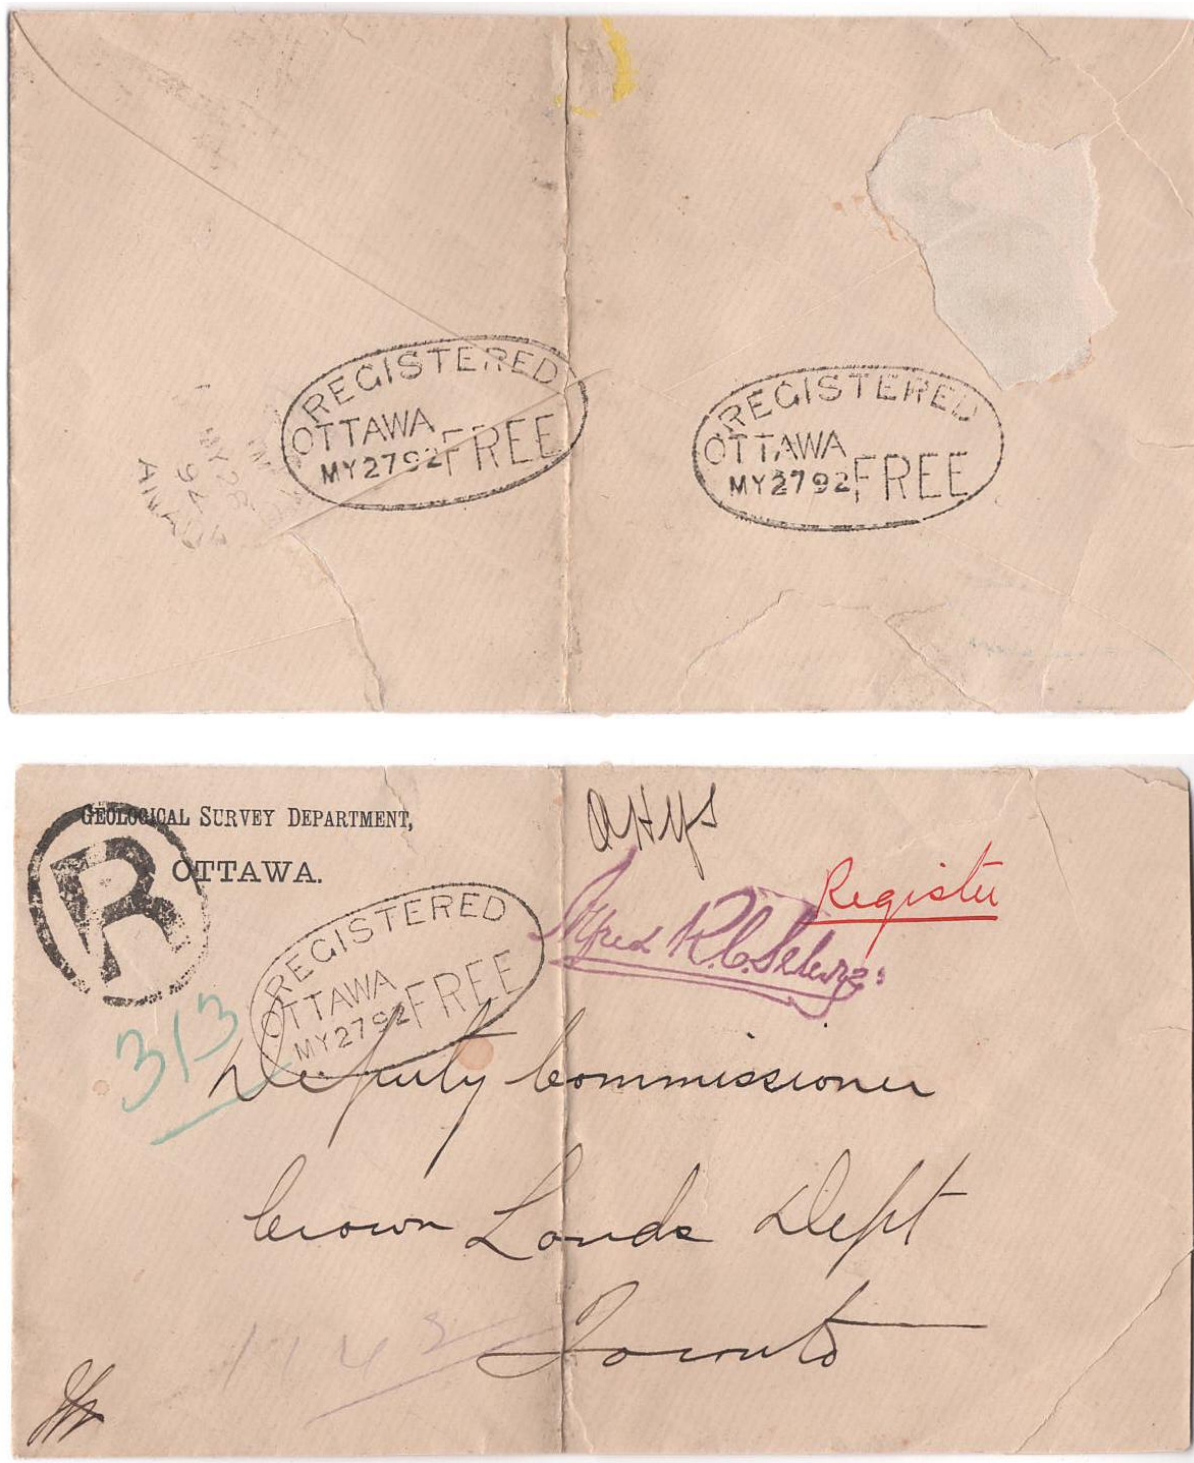 REGISTERED
OTTAWA
MY 27 92 FREE
REGISTERED
OTTAWA
MY 27 92 FREE
MY 28
92
GEOLOGICAL SURVEY DEPARTMENT,
OTTAWA.
R
Register
Alfred R. C. Selwyn
REGISTERED
OTTAWA
MY 27 92 FREE
313
Deputy Commissioner
Crown Lands Dept
Toronto